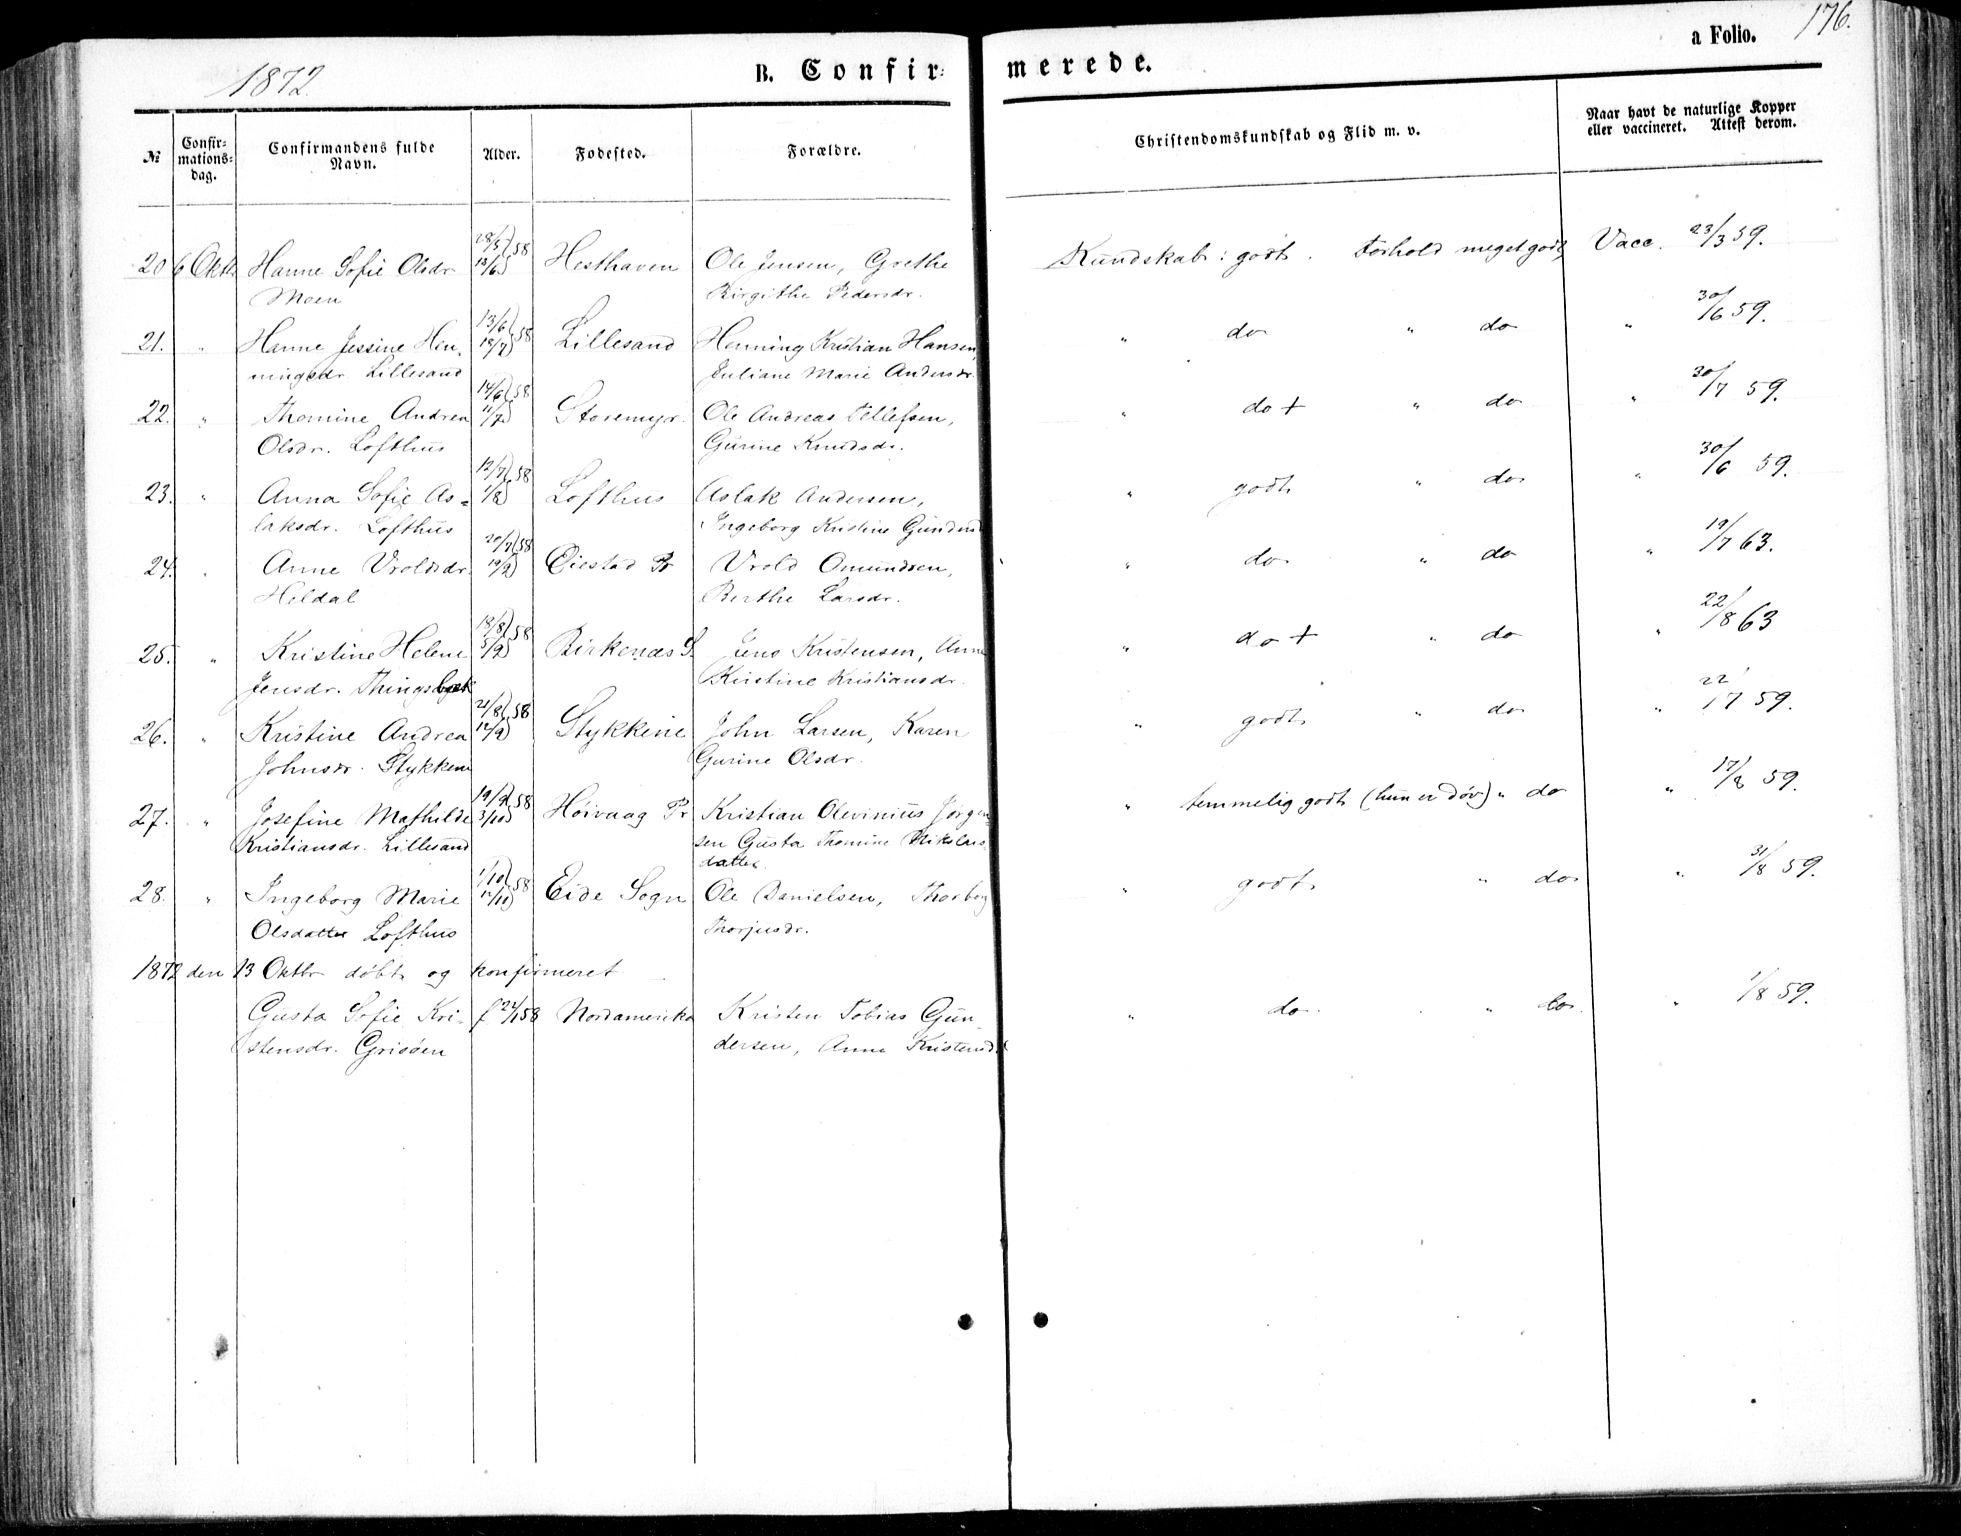 1872.
B. Confir=
merede.
a Folio. 176.
№
Confir-mations-dag.
Confirmandens fulde Navn.
Alder.
Fødested.
Forældre.
Christendomskundskab og Flid m. v.
Naar havt de naturlige Kopper eller vaccineret. Attest derom.
20 6 Oktb Hanne Sofie Olsdr 28/5 58 Hesthaven Ole Jensen, Grethe Kundskab: godt. Forhold meget godt Vacc. 23/3 59.
Moen 13/6 Birgithe Pedersdr.
21. " Hanne Jessine Hen- 13/6 58 Lillesand Henning Kristian Hansen, " do " do " 30/6 59.
ningsdr. Lillesand 18/7 Juliane Marie Andersdr.
22. " Thomine Andrea 14/6 58 Storemyr. Ole Andreas Tellefsen, " do + " do " 30/7 59.
Olsdr. Lofthus 11/7 Gurine Knudsdr.
23. " Anna Sofie As= 12/7 58 Lofthus Aslak Andersen, " godt " do " 30/6 59.
laksdr. Lofthus 1/8 Ingeborg Kristine Gundersd
24. " Anne Vroldsdr. 20/7 58 Øiestad Pr Vrold Omundsen, " do " do " 19/7 63.
Heldal 19/9 Berthe Larsdr.
25. " Kristine Helene 18/8 58 Birkenæs S. Jens Kristensen, Anne " do + " do " 22/8 63
Jensdr. Thingsbæk 5/9 Kristine Kristiansdr.
26. " Kristine Andrea 21/8 58 Stykkene John Larsen, Karen " godt " do " 22/7 59.
Johnsdr. Stykkene 12/9 Gurine Olsdr.
27. " Josefine Mathilde 19/9 58 Høivaag Pr Kristian Olevinius Jørgen- " temmelig godt (hun er døv) " do " 17/8 59.
Kristiansdr. Lillesand 3/10 sen Gusta Thomine Nikolais
datter.
28. " Ingeborg Marie 1/10 58 Eide Sogn Ole Danielsen, Thorborg " godt " do " 31/8 59.
Olsdatter Lofthus Thorjusdr.
1872 den 13 Oktbr døbt og konfirmeret
Gusta Sofie Kri- f 58 Nordamerika Kristen Tobias Gun- " do. " do. " 1/8 59.
stensdr. Grisøen dersen, Anne Kristensd